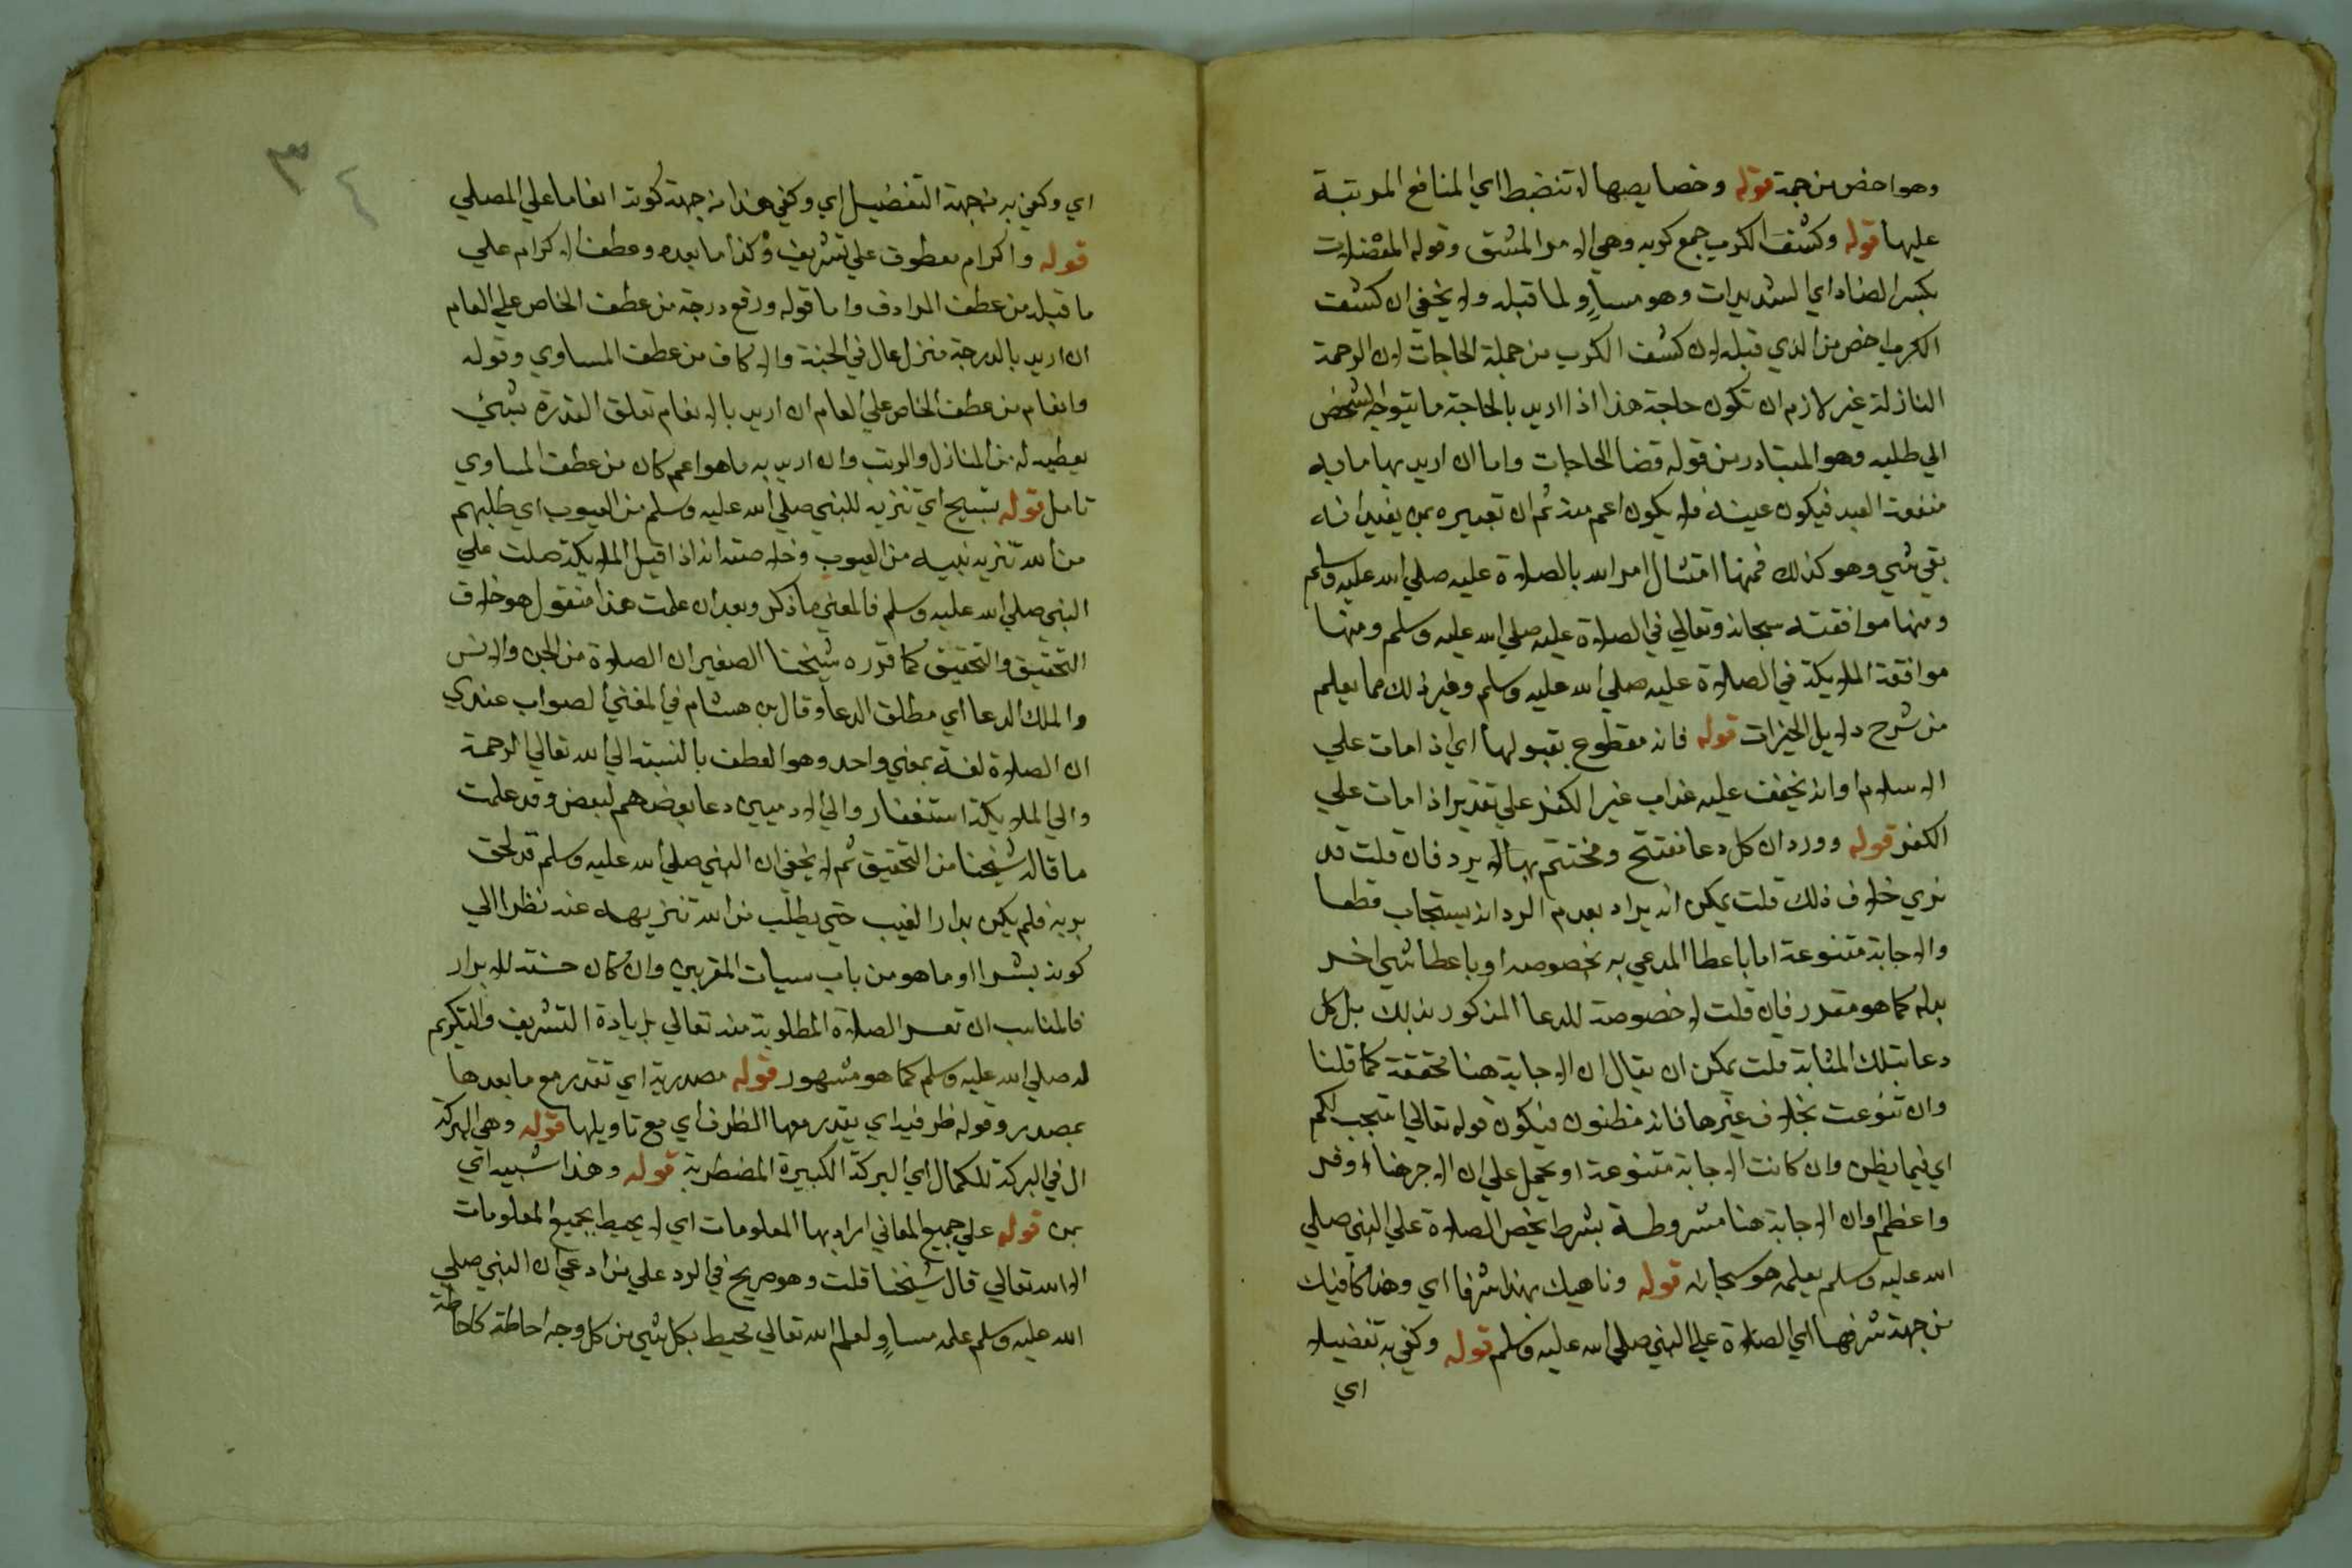 وهو اخص من جهة قوله وخصايصها لا تنضبط اي المنافع المرتبة
عليها قوله وكشف الكرب جمع كربه وهي الامر المشق وقوله المعضلات
بكسر الضاد اي الشديدات وهو مساوٍ لما قبله ولا يخفي ان كشف
الكرب اخص من الذي قبله لان كشف الكرب من جملة الحاجات لان الرحمة
النازلة غير لازم ان تكون حاجة هذا اذا اريد بالحاجة ما يتوجه الشخص
الي طلبه وهو المتبادر من قوله قضا الحاجات واما ان اريد بها ما فيه
منفعة العبد فيكون عينه فلا يكون اعم منه ثم ان تعبيره بمن يفيد انه
بقي شي وهو كذلك فمنها امتثال امر الله بالصلاة عليه صلي الله عليه وسلم
ومنها موافقته سبحانه وتعالي في الصلاة عليه صلي الله عليه وسلم ومنها
موافقة الملايكة في الصلاة عليه صلي الله عليه وسلم وغير ذلك مما يعلم
من شرح دلايل الخيرات قوله فانه مقطوع بقبولها اي اذا مات علي
الاسلام وانه يخفف عليه عذاب غير الكفر علي تقدير اذا مات علي
الكفر قوله وورد ان كل دعا مفتتح ومختتم بها لا يرد فان قلت قد
نري خلاف ذلك قلت يمكن انه يراد بعدم الرد انه يستجاب قطعا
والاجابة متنوعة اما باعطا المدعي به بخصوصه او باعطا شي اخر
بدله كما هو مقدر فان قلت لا خصوصة للدعا المذكور بذلك بل كل
دعا بتلك المثابة قلت يمكن ان يقال ان الاجابة هنا محققة كما قلنا
وان تنوعت بخلاف غيرها فانه مظنون فيكون قوله تعالي استجب لكم
اي فيما يظن وان كانت الاجابة متنوعة او يحمل علي ان الاجر هنا اوفر
واعظم او ان الاجابة هنا مشروطة بشرط يخص الصلاة علي النبي صلي
الله عليه وسلم يعلمه هو سبحانه قوله وناهيك بهذا شرفا اي وهذا كافيك
من جهة شرفها اي الصلاة علي النبي صلي الله عليه وسلم قوله وكفي به تفضيلا
اي
اي وكفي به من جهة التفضيل اي وكفي هذا من جهة كونه انعاما علي المصلي
قوله واكرام معطوف علي تشريف وكذا ما بعده وعطف الاكرام علي
ما قبله من عطف المرادف واما قوله ورفع درجة من عطف الخاص علي العام
ان اريد بالدرجة منزل عال في الجنة والا كان من عطف المساوي وقوله
وانعام من عطف الخاص علي العام ان اريد بالانعام تعلق القدرة بشي
يعطيه له من المنازل والرتب وان اريد به ما هو اعم كان من عطف المساوي
تامل قوله تسبيح اي تنزيه للنبي صلي الله عليه وسلم من العيوب اي طلبهم
من الله تنزيه نبيه من العيوب وخلاصته انه اذا قيل الملايكة صلت علي
النبي صلي الله عليه وسلم فالمعني ما ذكر وبعد ان علمت هذا فنقول هو خلاف
التحقيق والتحقيق كما قرره شيخنا الصغير ان الصلاة من الجن والانس
والملك الدعا اي مطلق الدعا وقال بن هشام في المغني الصواب عندي
ان الصلاة لغة بمعني واحد وهو العطف بالنسبة الي الله تعالي الرحمة
والي الملايكة استغفار والي الادميين دعا بعضهم لبعض وقد علمت
ما قاله شيخنا من التحقيق ثم لا يخفي ان النبي صلي الله عليه وسلم قد لحق
بربه فلم يكن بدار العيب حتي يطلب من الله تنزيهه عنه نظرا الي
كونه بشرا او ما هو من باب سيات المقربين وان كان حسنة للابرار
فالمناسب ان تفسر الصلاة المطلوبة منه تعالي بزيادة التشريف والتكريم
له صلي الله عليه وسلم كما هو مشهور قوله مصدرية اي تقدر مع ما بعدها
بمصدر وقوله ظرفية اي يقدر معها الظرف اي مع تاويلها قوله وهي البركة
ال في البركة للكمال اي البركة الكبيرة المضطربة قوله وهذا شبيه اتي
بمن قوله علي جميع المعاني اراد بها المعلومات اي لا يحيط بجميع المعلومات
الا الله تعالي قال شيخنا قلت وهو صريح في الرد علي من ادعي ان النبي صلي
الله عليه وسلم علمه مساوٍ لعلم الله تعالي محيط بكل شي من كل وجه احاطة كاحاطة